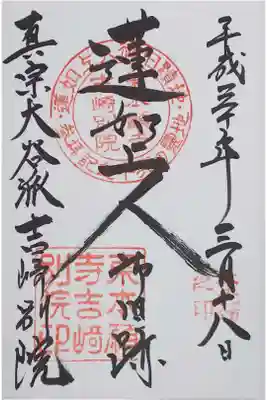 平成三十年三月十八日
蓮如上人
御旧跡
真宗大谷派吉崎別院
東本願
寺吉崎
別院印